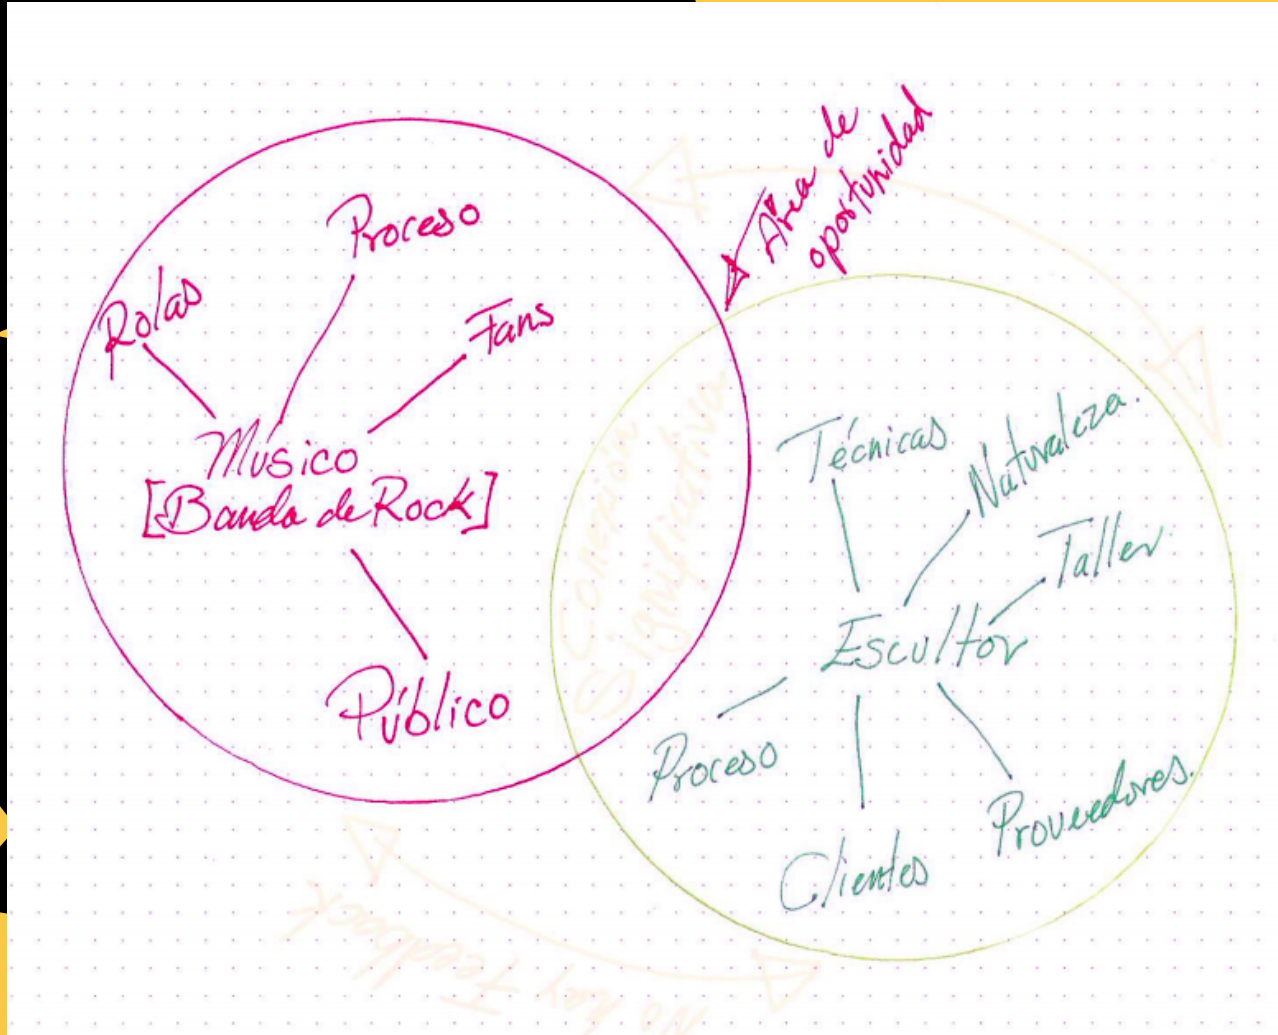 Área de
oportunidad
Proceso
Rolas
Fans
Músico
[Banda de Rock]
Público
Conexión
Significativa
Técnicas
Naturaleza.
Taller
Escultor
Proceso
Clientes
Proveedores.
No hay Feedback